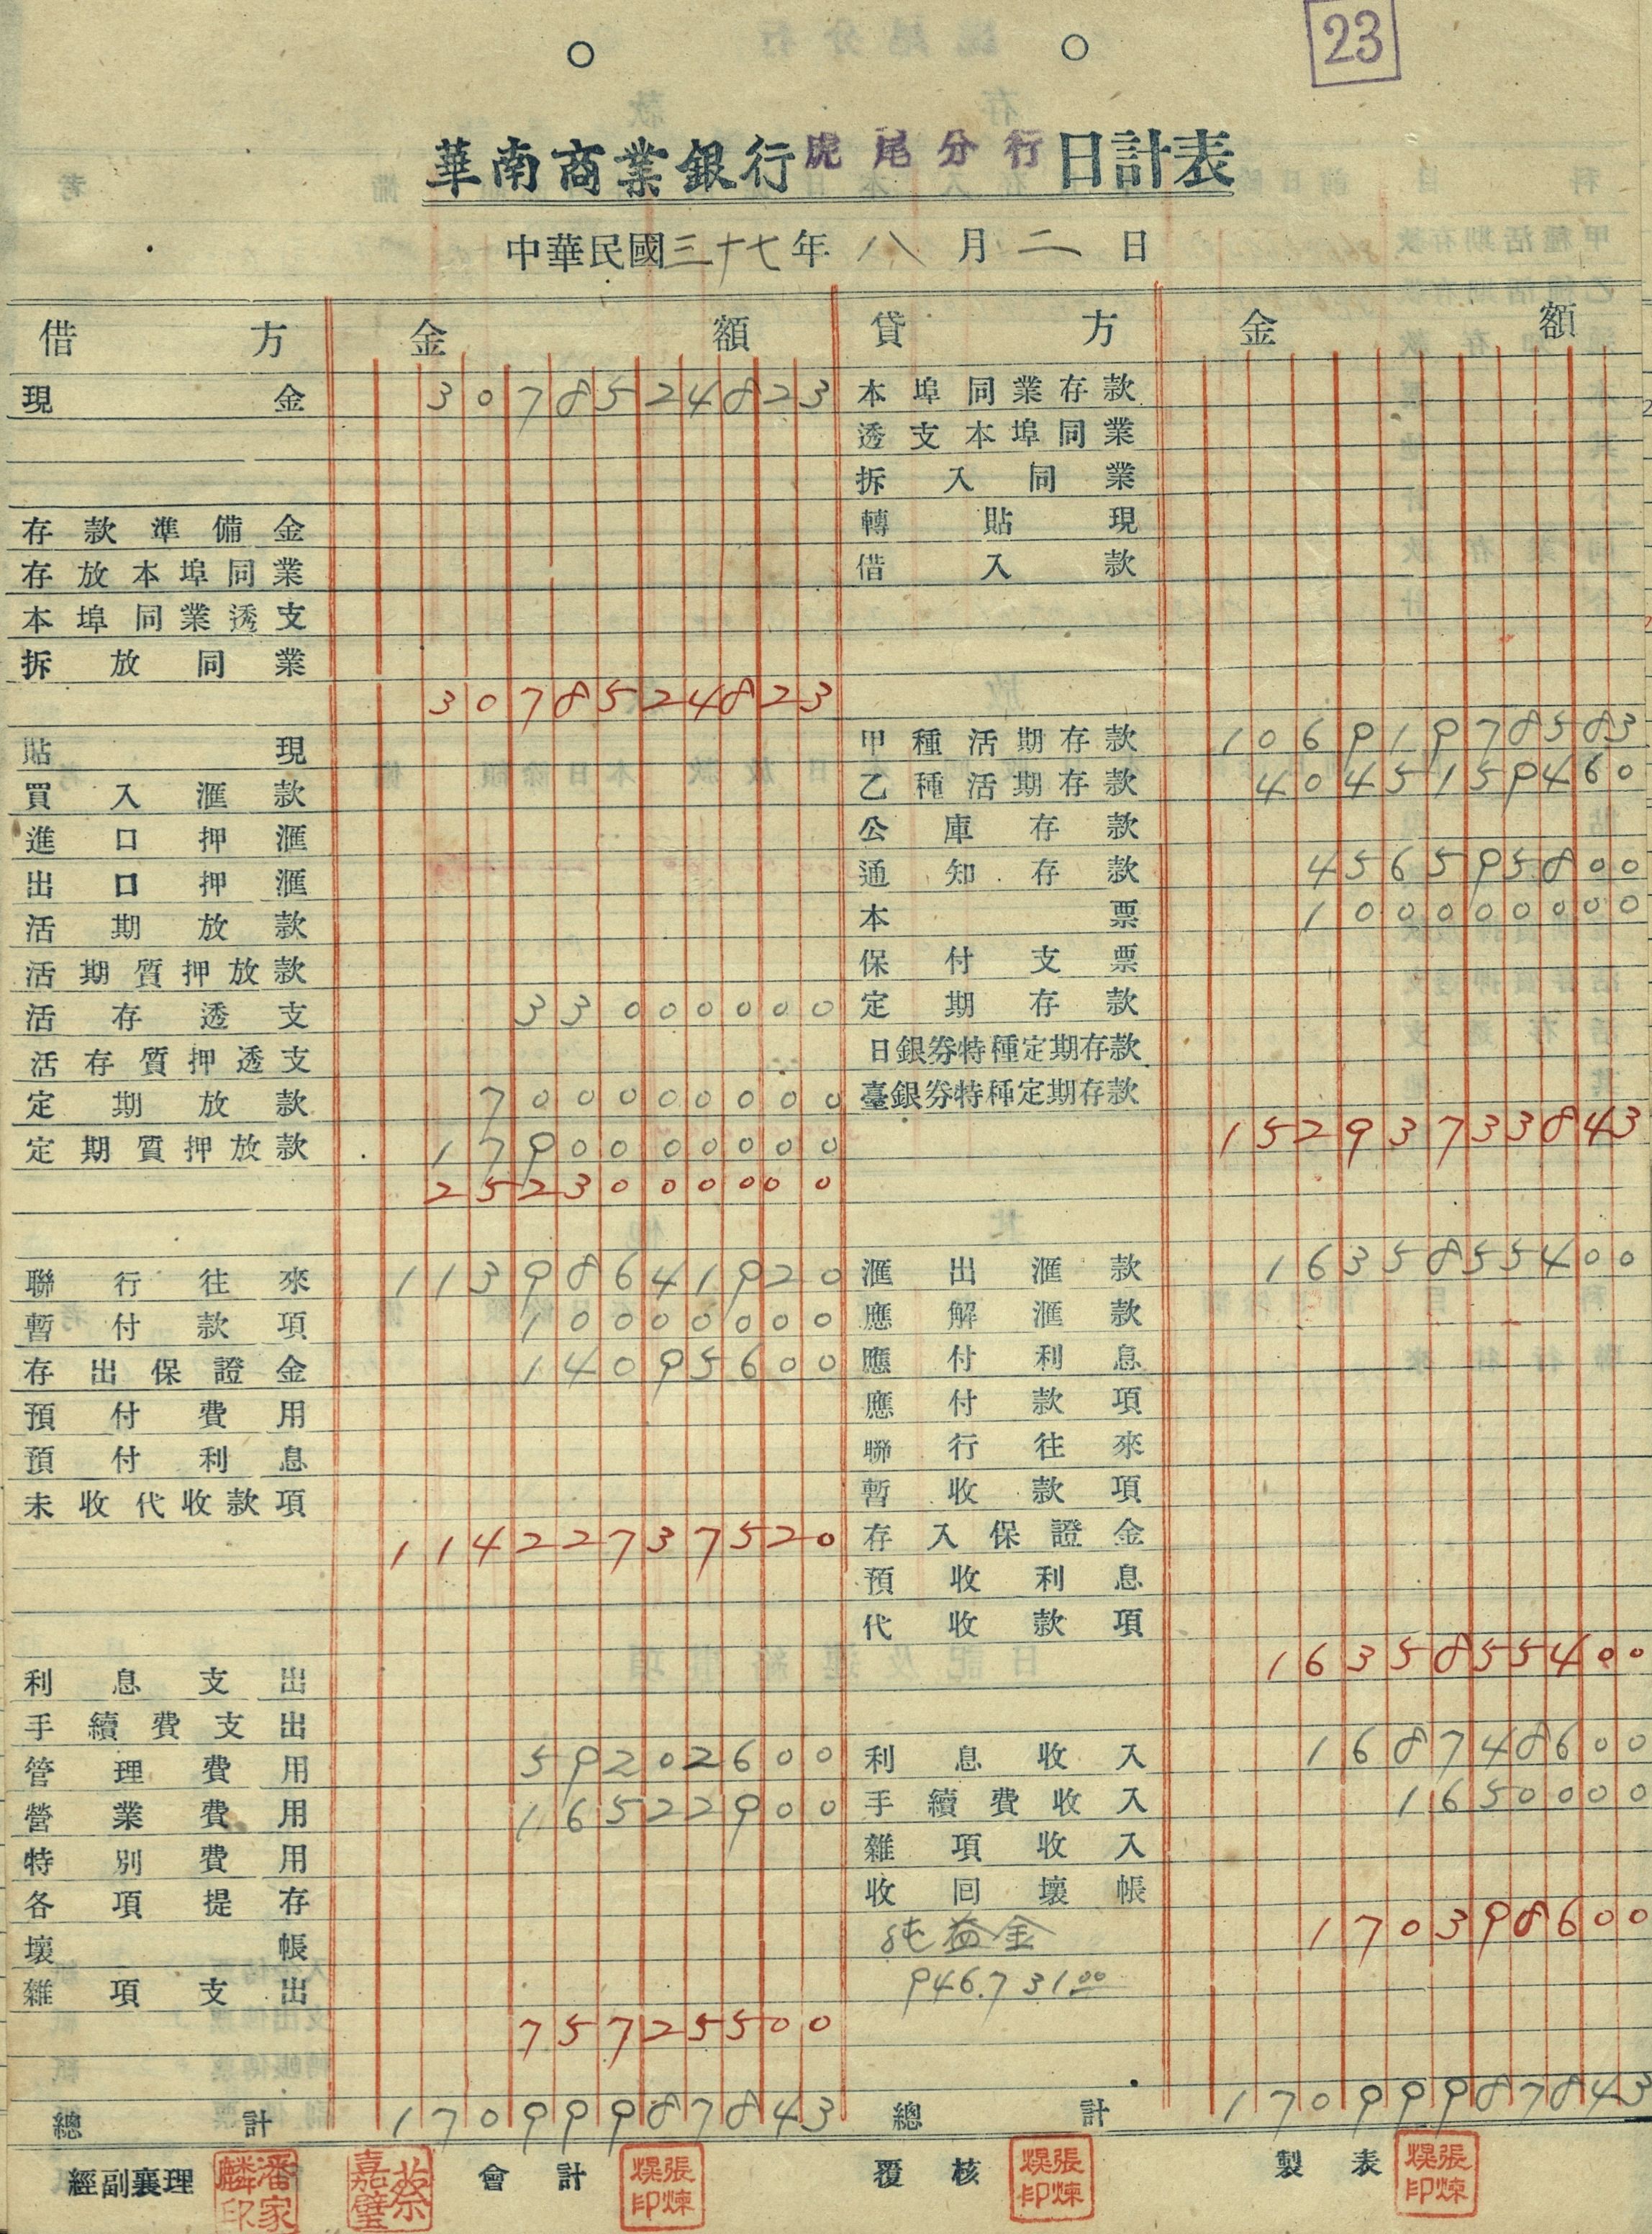 23
華南商業銀行虎尾分行日計表
中華民國三十七年八月二日
借方 金額 貸方 金額
現金 3078524823 本埠同業存款
透支本埠同業
拆入同業
存款準備金 轉貼現
存放本埠同業 借入款
本埠同業透支
拆放同業
3078524823
貼現 甲種活期存款 10691978583
買入滙款 乙種活期存款 4045159460
進口押滙 公庫存款
出口押滙 通知存款 456595800
活期放款 本票 100000000
活期質押放款 保付支票
活存透支 33000000 定期存款
活存質押透支 日銀券特種定期存款
定期放款 700000000 臺銀券特種定期存款
定期質押放款 1790000000 15293733843
2523000000
聯行往來 11398641920 滙出滙款 1635855400
暫付款項 10000000 應解滙款
存出保證金 14095600 應付利息
預付費用 應付款項
預付利息 聯行往來
未收代收款項 暫收款項
11422737520 存入保證金
預收利息
代收款項
利息支出 1635855400
手續費支出
管理費用 59202600 利息收入 168748600
營業費用 16522900 手續費收入 1650000
特別費用 雜項收入
各項提存 收回壞帳
壞帳 純益金 170398600
雜項支出 946,731.00
75725500
總計 17099987843 總計 17099987843
經副襄理 潘家麟印 蔡嘉璧 會計 張煉焿印 覆核 張煉焿印 製表 張煉焿印